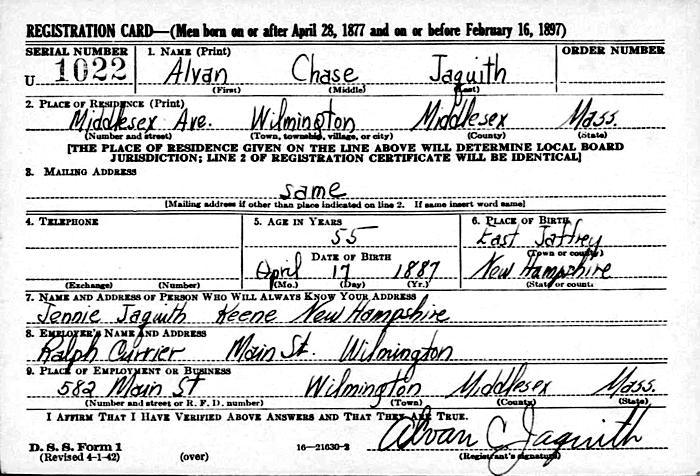 REGISTRATION CARD—(Men born on or after April 28, 1877 and on or before February 16, 1897)
SERIAL NUMBER 1. NAME (Print) ORDER NUMBER
U 1022 Alvan Chase Jaquith
(First) (Middle) (Last)
2. PLACE OF RESIDENCE (Print)
Middlesex Ave. Wilmington Middlesex Mass.
(Number and street) (Town, township, village, or city) (County) (State)
[THE PLACE OF RESIDENCE GIVEN ON THE LINE ABOVE WILL DETERMINE LOCAL BOARD
JURISDICTION; LINE 2 OF REGISTRATION CERTIFICATE WILL BE IDENTICAL]
3. MAILING ADDRESS
same
[Mailing address if other than place indicated on line 2. If same insert word same]
4. TELEPHONE 5. AGE IN YEARS 6. PLACE OF BIRTH
55 East Jaffrey
DATE OF BIRTH (Town or county)
April 17 1887 New Hampshire
(Exchange) (Number) (Mo.) (Day) (Yr.) (State or country)
7. NAME AND ADDRESS OF PERSON WHO WILL ALWAYS KNOW YOUR ADDRESS
Jennie Jaquith Keene New Hampshire
8. EMPLOYER'S NAME AND ADDRESS
Ralph Currier Main St. Wilmington
9. PLACE OF EMPLOYMENT OR BUSINESS
582 Main St Wilmington Middlesex Mass.
(Number and street or R. F. D. number) (Town) (County) (State)
I AFFIRM THAT I HAVE VERIFIED ABOVE ANSWERS AND THAT THEY ARE TRUE.
Alvan C Jaquith
D. S. S. Form 1
(Revised 4-1-42) (over) 16—21630-2 (Registrant's signature)